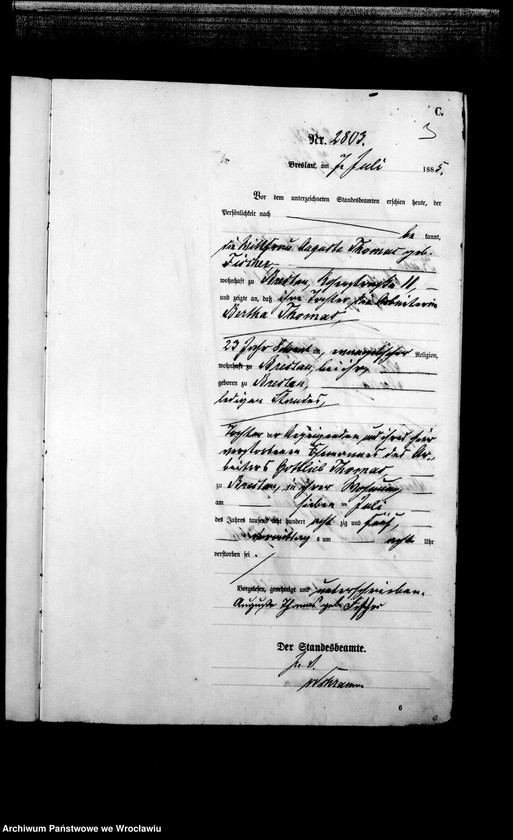 C.
Nr. 2803.
Breslau, am 7. Juli 1885.
Vor dem unterzeichneten Standesbeamten erschien heute, der
Persönlichkeit nach
be kannt,
die Wittfrau Auguste Thomas geb.
Fischer
wohnhaft zu Breslau, 11,
und zeigte an, daß ihre Tochter, die Arbeiterin
Bertha Thomas,
23 Jahr alt, evangelischer Religion,
wohnhaft zu Breslau, bei ihr,
geboren zu Breslau,
ledigen Standes,
Tochter der Anzeigenden und ihres hier
verstorbenen Ehemannes des Ar-
beiters Gottlieb Thomas
zu Breslau, in ihrer Wohnung
am sieben ten Juli
des Jahres tausend acht hundert acht zig und fünf,
Vormittags um acht Uhr
verstorben sei.
Vorgelesen, genehmigt und unterschrieben.
Auguste Thomas geb. Fischer
Der Standesbeamte.
In V.
6
Archiwum Państwowe we Wrocławiu